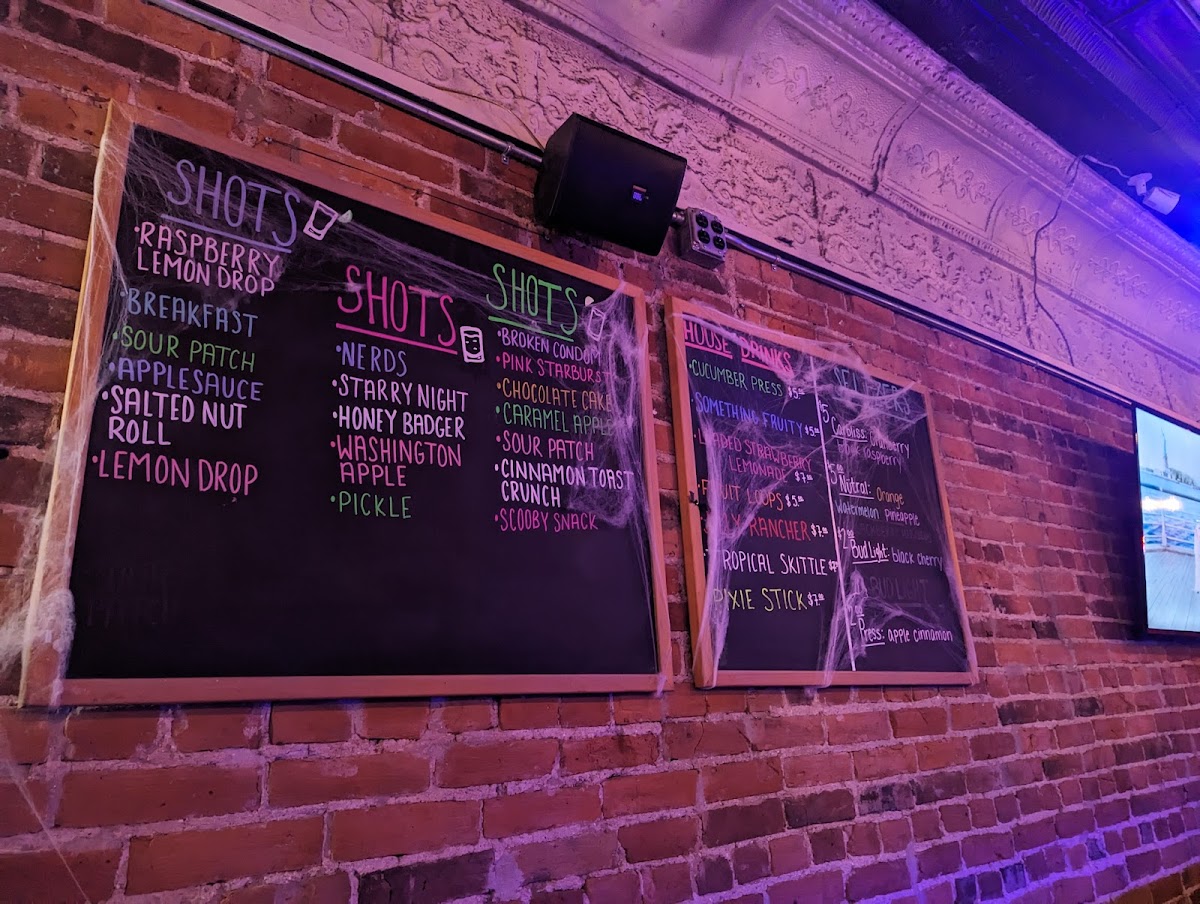 SHOTS
•RASPBERRY
LEMON DROP
•BREAKFAST
•SOUR PATCH
•APPLESAUCE
•SALTED NUT
ROLL
•LEMON DROP
SHOTS
•NERDS
•STARRY NIGHT
•HONEY BADGER
•WASHINGTON
APPLE
•PICKLE
SHOTS
•BROKEN CONDOM
•PINK STARBURST
•CHOCOLATE CAKE
•CARAMEL APPLE
•SOUR PATCH
•CINNAMON TOAST
CRUNCH
•SCOOBY SNACK
HOUSE DRINKS
•CUCUMBER PRESS $5.00
•SOMETHING FRUITY $5.00
STRAWBERRY
LEMONADE $7.00
FRUIT LOOPS $5.00
RANCHER $7.00
TROPICAL SKITTLE
PIXIE STICK $7.00
SELTZERS
Carbliss: cranberry
raspberry
Nütral: Orange
Watermelon pineapple
Bud Light: black cherry
BUD LIGHT
Press: apple cinnamon